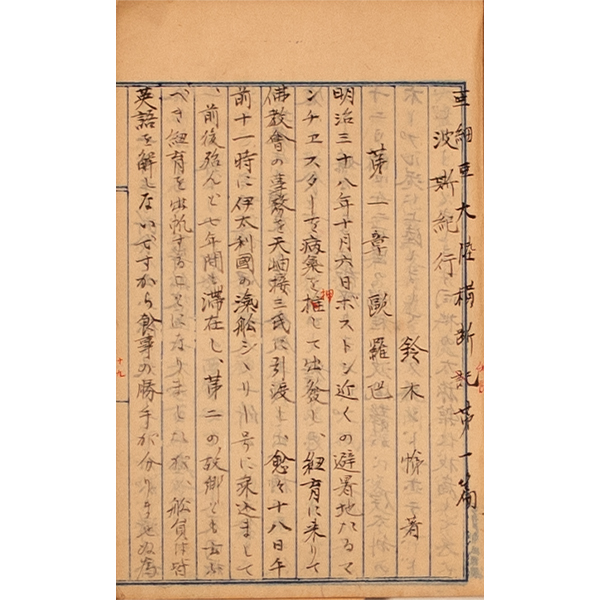 亜細亜大陸横断記第一篇
波斯紀行 鈴木 悌著
第一章 歐羅巴
明治三十八年十月六日ボストン近くの避暑地たるマ
ンチヱスターを病気を推して出發し、紐育に来りて
押
佛教會の事務を天岫接三氏に引渡し、愈々十八日午
前十一時に伊太利國の滊舩シシリー号に乗込まして
、前後殆んど七年間も滞在し、第二の故郷とも云ふ
べき紐育を出帆することになりましたが、舩員は皆
英語を解しないですから食事の勝手が分りませぬ為
十九